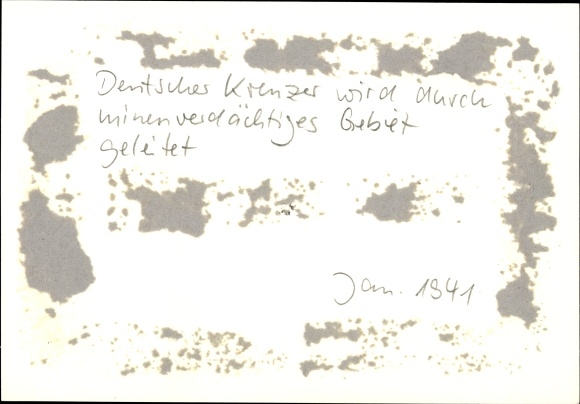 Deutscher Kreuzer wird durch
minenverdächtiges Gebiet
geleitet
Jan. 1941